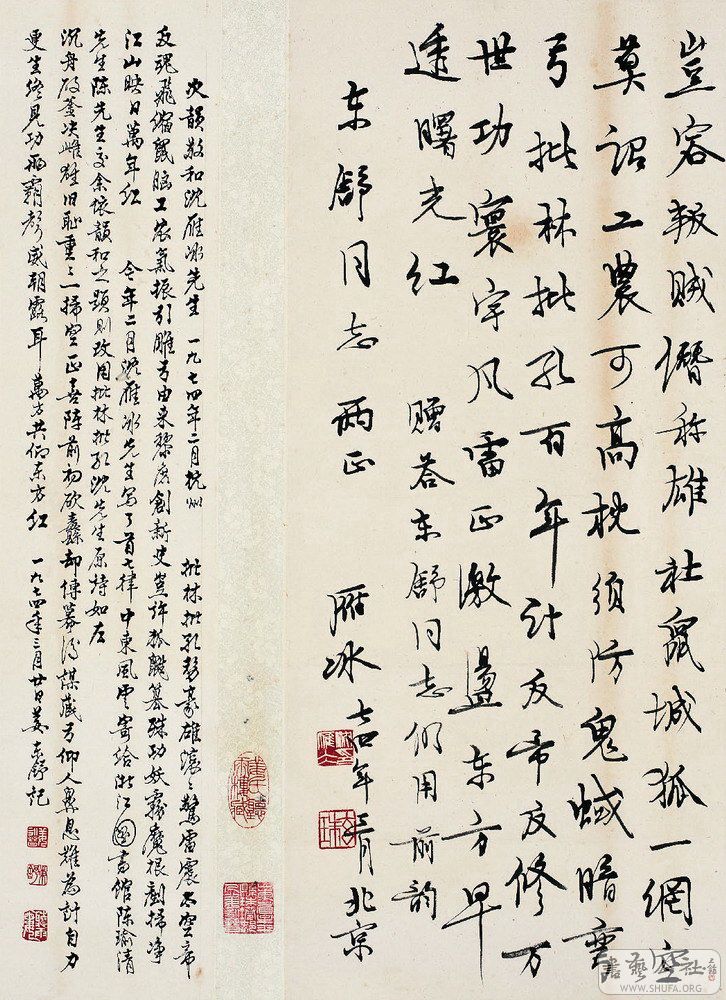 豈容叛贼僭称雄社鼠城狐一網空
莫謂工農可高枕须防鬼蜮暗弯
弓批林批孔百年计反帝反修万
世功寰宇风雷正激盪东方早
透曙光红 赠荅东舒同志仍用前韵
东舒同志 两正 雁冰 七四年三月北京
次韻敬和沈雁冰先生 一九七四年二月杭州 批林批孔彰豪雄滚々驚雷震太空帝
反魂飛缩鼠脑工农氣振引雕弓由来黎庶創新史豈许狐鼷篡殊功妖霧魔根剷掃净
江山映日萬年红 今年二月沈雁冰先生写了首七律中東風雲寄给浙江圖书馆陈瑜清
先生陈先生交余依韻和之题则改用批林批孔沈先生原诗如左
沉舟破釜决雌雄旧耻重々一掃空正喜阵前初砍纛却傳幕后谋藏弓仰人鼻息难为計自力
更生终見功两霸声威朝露耳萬方共仰东方红 一九七四年三月廿日姜东舒记
WWW.SHUFA.ORG